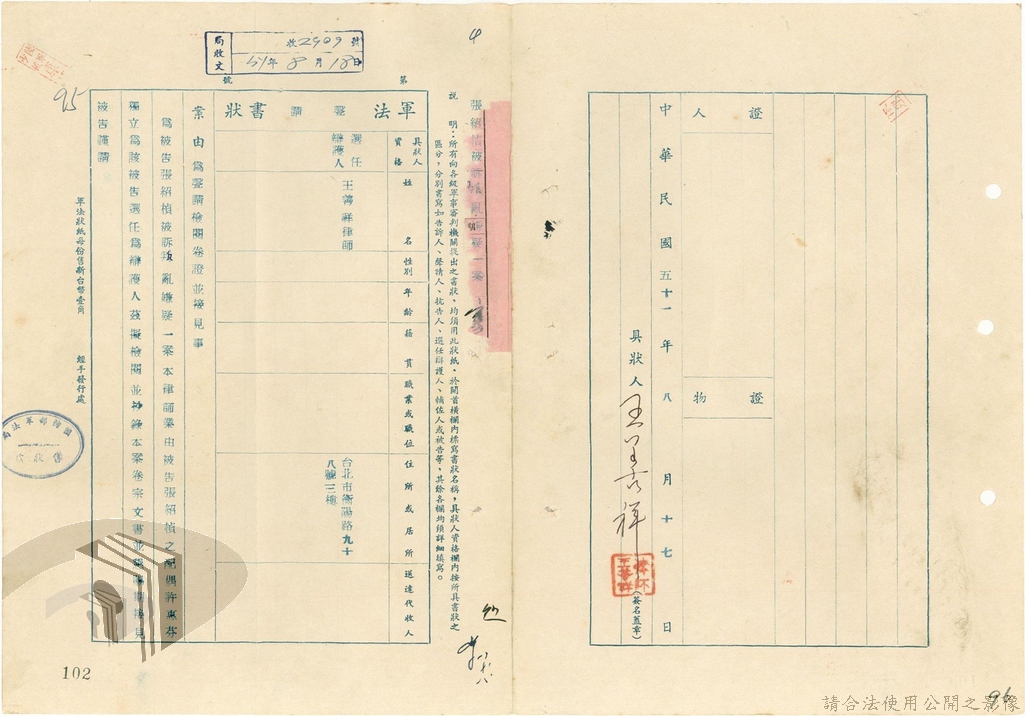 局收文
收2909號
51年8月18日
第
號
4
95
張紹楨被訴叛亂嫌疑一案
說明：所有向各級軍事審判機關提出之書狀，均須用此狀紙，於開首橫欄內標寫書狀名稱，具狀人資格欄內按所具書狀之
區分，分別書寫如告訴人、聲請人、抗告人、選任辯護人、輔佐人或被告等，其餘各欄均須詳細填寫。
軍法聲請書狀
具狀人資格
姓名
性別
年齡
籍貫
職業或職位
住所或居所
送達代收人
選任
辯護人
王善祥律師
台北市衡陽路九十
八號三樓
案由
為聲請檢閱卷證並接見事
為被告張紹楨被訴叛亂嫌疑一案本律師業由被告張紹楨之配偶許惠芬
獨立為該被告選任為辯護人茲擬檢閱並抄錄本案卷宗文書並擬訂期接見
被告謹請
軍法狀紙每份售新台幣壹角
經手發行處
國防部軍法局
售狀處
102
證人
證物
中華民國五十一年八月十七日
具狀人
王善祥
(簽名蓋章)
96
請合法使用公開之影像